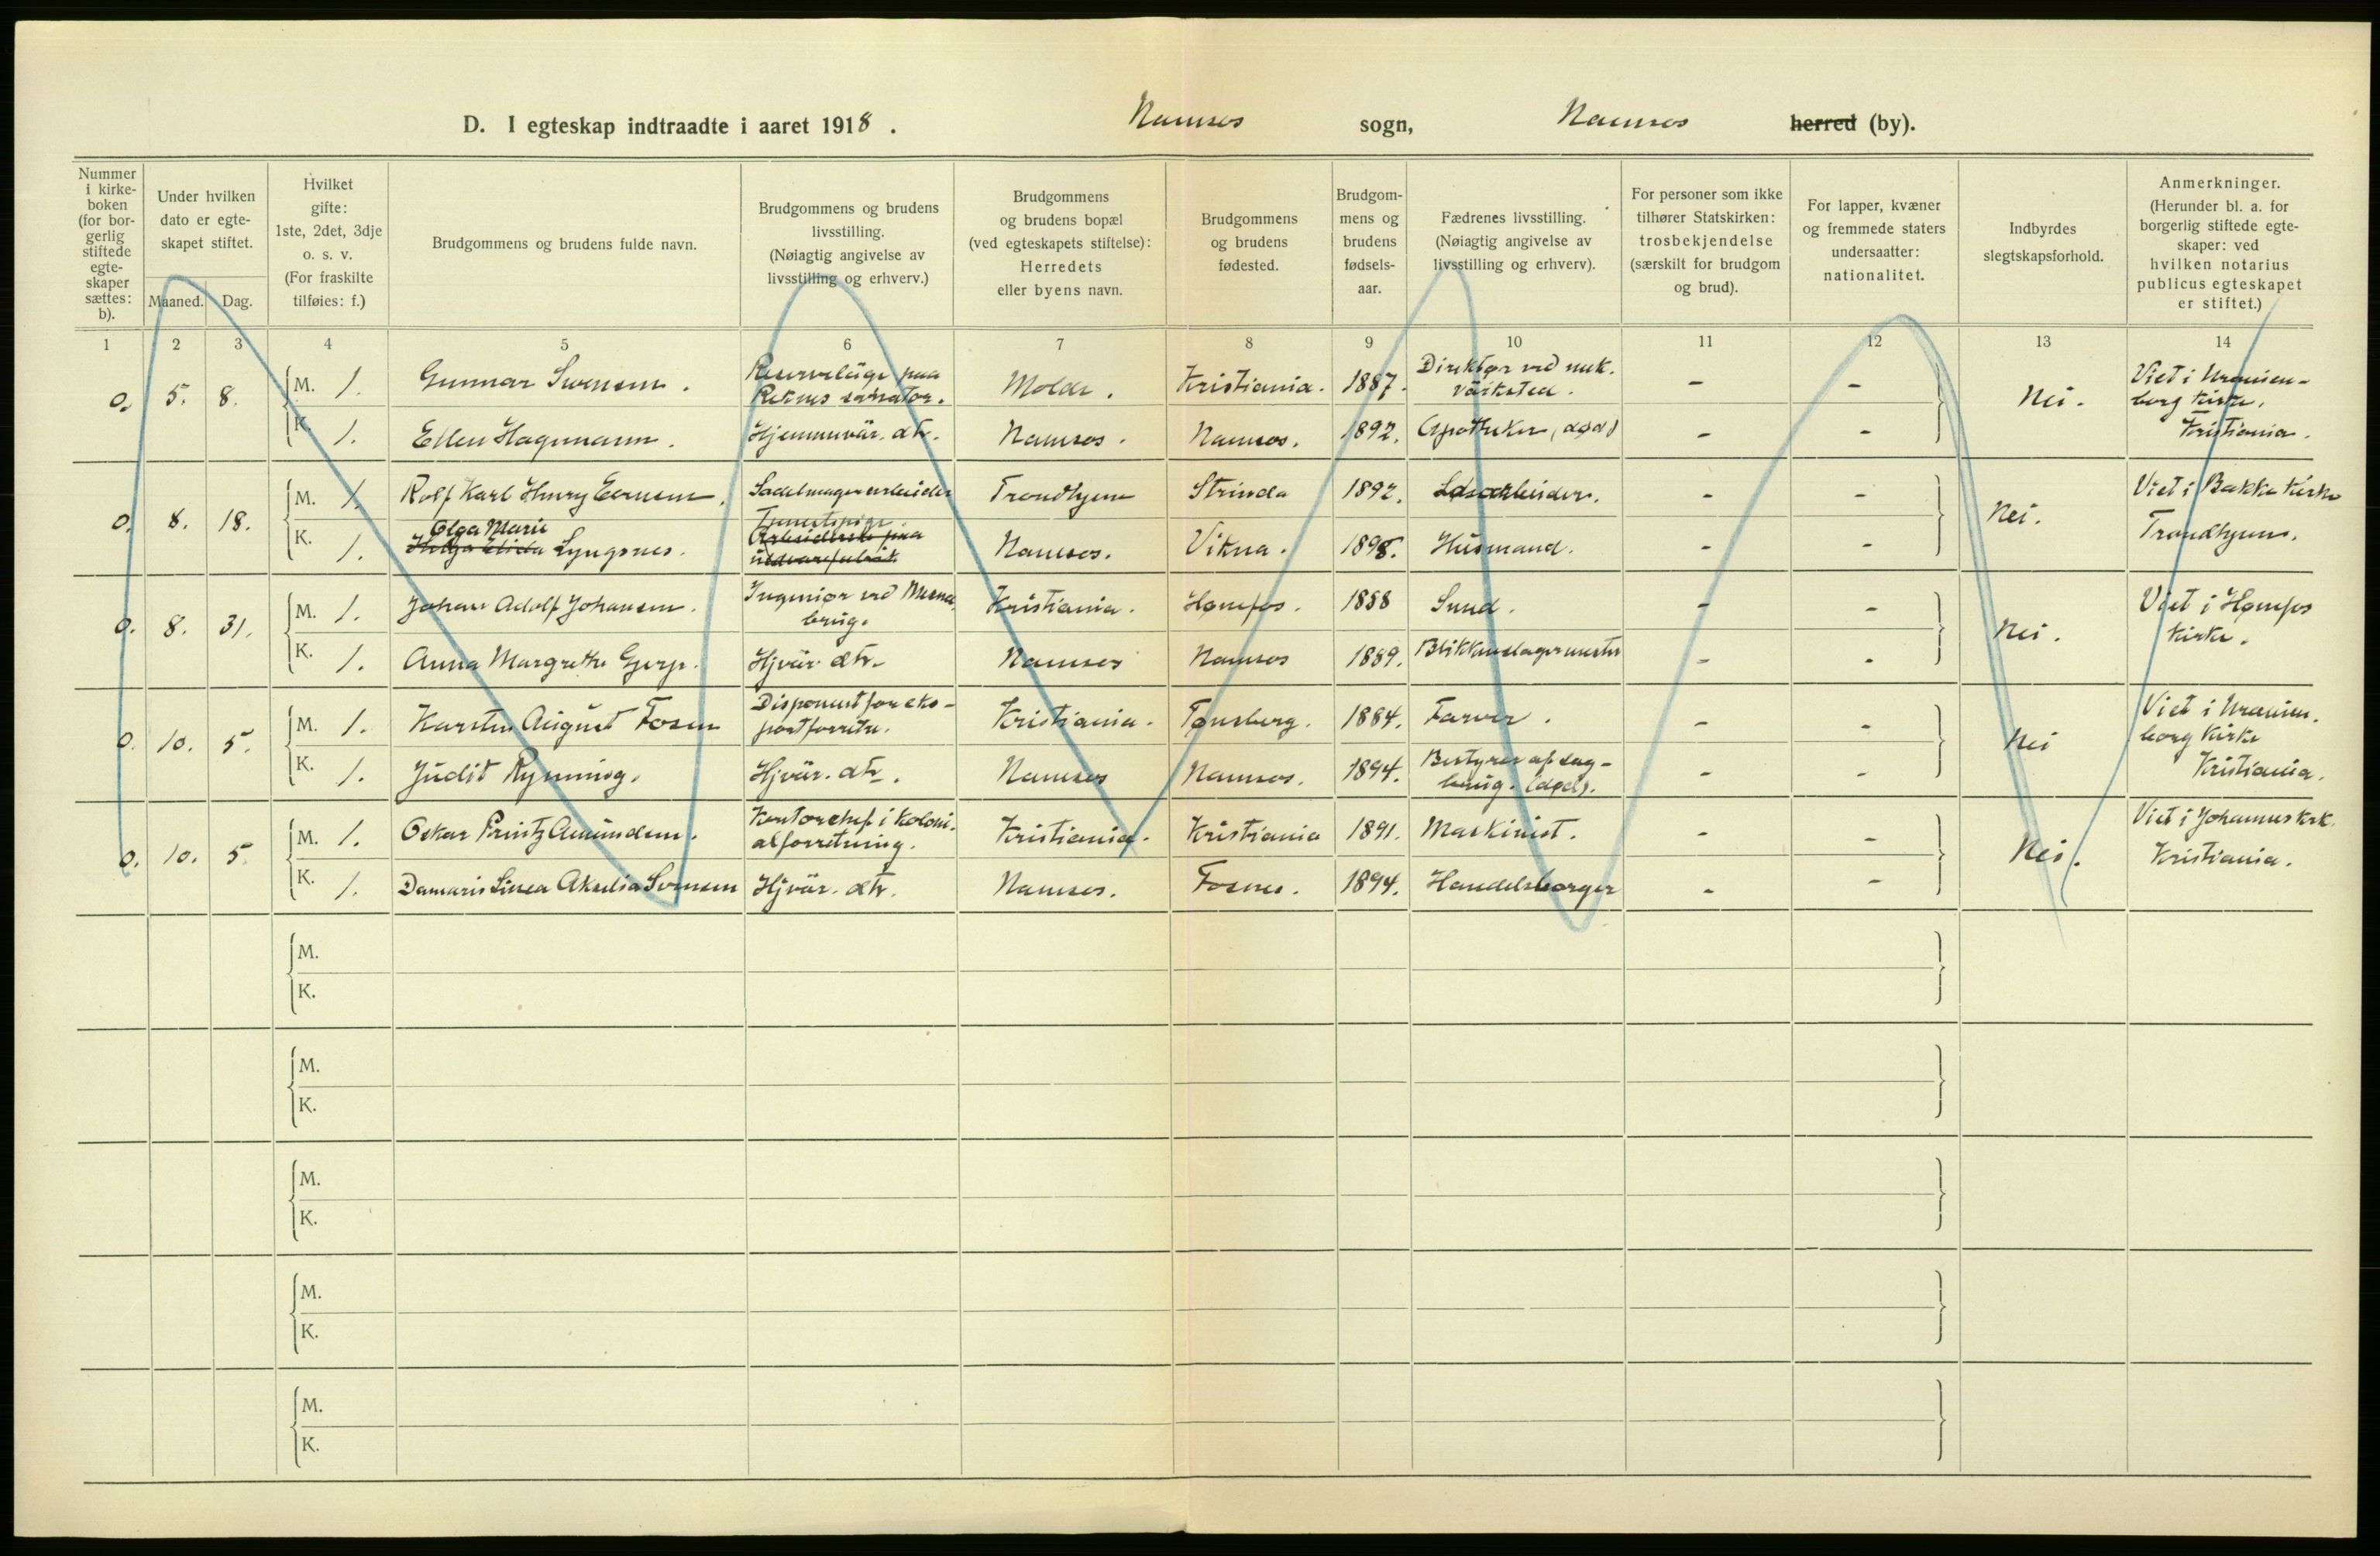 D. I egteskap indtraadte i aaret 1918. Namsos sogn, Namsos herred (by).
Nummer
i kirke-
boken
(for bor-
gerlig
stiftede
egte-
skaper
sættes:
b).
Under hvilken
dato er egte-
skapet stiftet.
Maaned. Dag.
Hvilket
gifte:
1ste, 2det, 3dje
o. s. v.
(For fraskilte
tilføies: f.)
Brudgommens og brudens fulde navn.
Brudgommens og brudens
livsstilling.
(Nøiagtig angivelse av
livsstilling og erhverv.)
Brudgommens
og brudens bopæl
(ved egteskapets stiftelse):
Herredets
eller byens navn.
Brudgommens
og brudens
fødested.
Brudgom-
mens og
brudens
fødsels-
aar.
Fædrenes livsstilling.
(Nøiagtig angivelse av
livsstilling og erhverv).
For personer som ikke
tilhører Statskirken:
trosbekjendelse
(særskilt for brudgom
og brud).
For lapper, kvæner
og fremmede staters
undersaatter:
nationalitet.
Indbyrdes
slegtskapsforhold.
Anmerkninger.
(Herunder bl. a. for
borgerlig stiftede egte-
skaper: ved
hvilken notarius
publicus egteskapet
er stiftet.)
1 2 3 4 5 6 7 8 9 10 11 12 13 14
0. 5. 8.
M. 1. Gunnar Svensen. Reservelæge paa
Reknes sanator. Molde. Kristiania. 1887. Direktør ved mek.
værksted. - -
K. 1. Ellen Hagemann. Hjemmevær. dtr. Namsos. Namsos. 1892. Apotheker (død) - -
Nei.
Viet i Uranien-
borg kirke,
Kristiania.
0. 8. 18.
M. 1. Rolf Karl Henry Evensen. Sadelmagerarbeider Trondhjem Strinda 1892. Løsarbeider. - -
K. 1. Olga Marie
Helga Elida Lyngsnes. Tjenestepige.
Arbeiderske paa
uldvarefabrik Namsos. Vikna. 1898. Husmand. - -
Nei.
Viet i Bakke kirke
Trondhjem.
0. 8. 31.
M. 1. Johan Adolf Johansen. Ingeniør ved Mesna
brug. Kristiania. Hønefos. 1888 Smed. - -
K. 1. Anna Margrethe Gjerp. Hjvær. dtr. Namsos Namsos 1889. Blikkenslagermester - -
Nei.
Viet i Hønefos
kirke.
0. 10. 5.
M. 1. Karsten August Fosen Disponent for eks-
portforretn. Kristiania. Tønsberg. 1884. Farver. - -
K. 1. Judit Rynning. Hjvær. dtr. Namsos Namsos. 1894. Bestyrer af sag-
brug. (død). - -
Nei
Viet i Uranien.
borg kirke
Kristiania.
0. 10. 5.
M. 1. Oskar Printz Amundsen. Kontorchef i koloni-
alforretning. Kristiania. Kristiania 1891. Maskinist. - -
K. 1. Damaris Linea Akselia Svensen Hjvær. dtr. Namsos. Fosnes. 1894. Handelsborger - -
Nei.
Viet i Johannes kirk.
Kristiania.
M.
K.
M.
K.
M.
K.
M.
K.
M.
K.